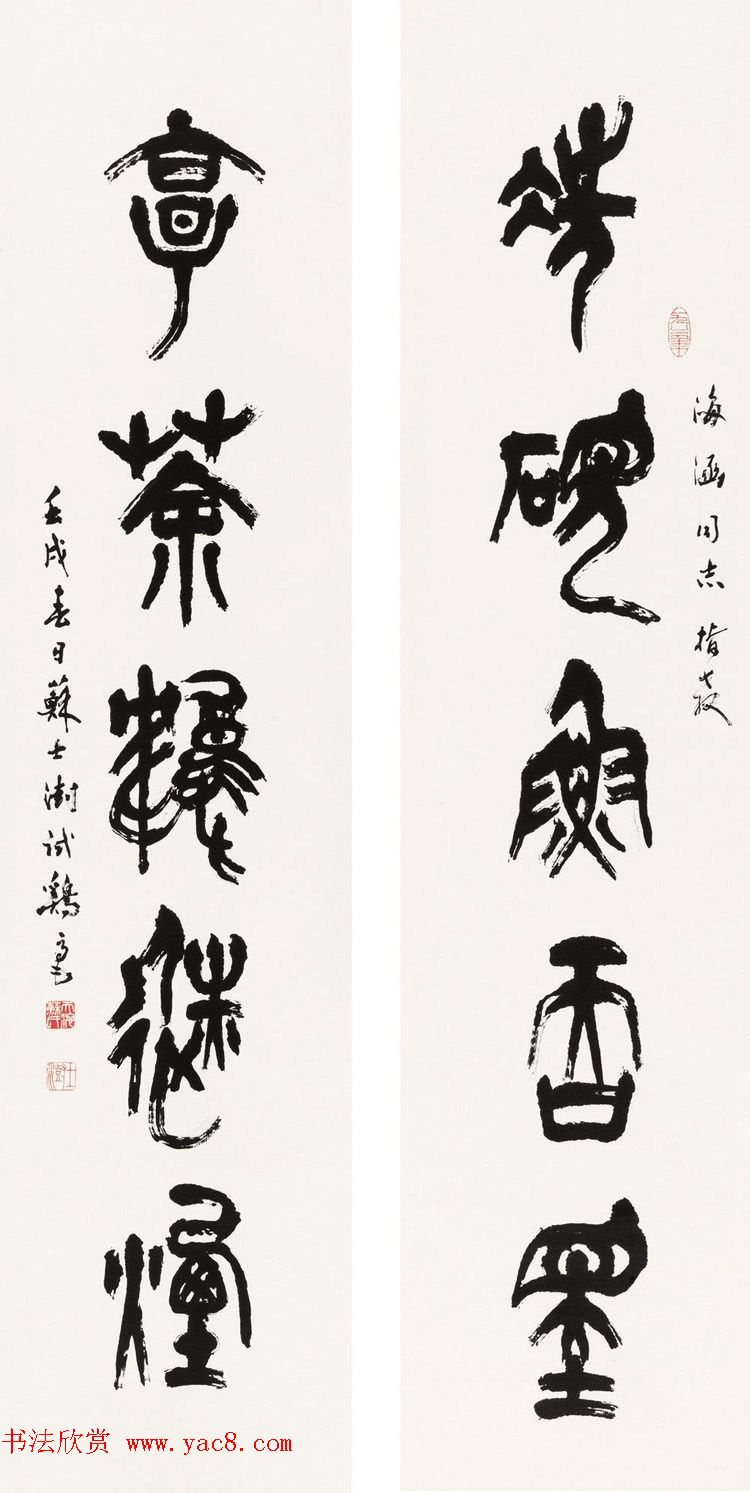 海涵同志指教
洗硯魚吞墨
烹茶鶴避煙
壬戌春日蘇士澍試鷄毫
书法欣赏 www.yac8.com